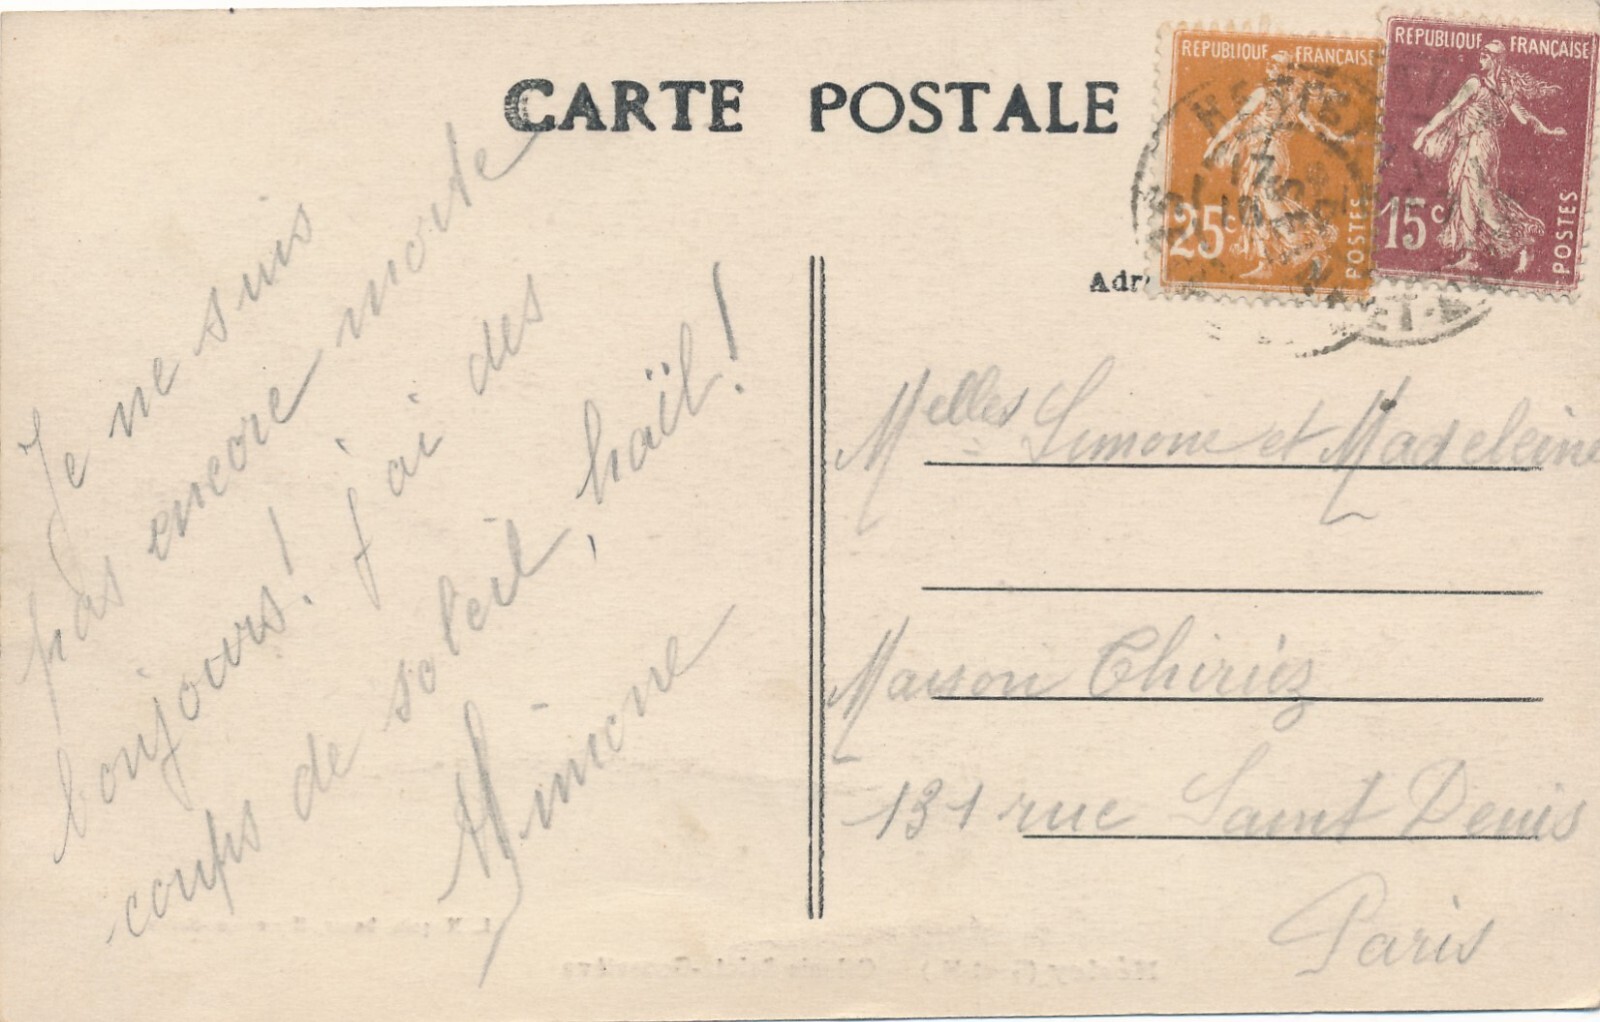 CARTE POSTALE
REPUBLIQUE FRANÇAISE
25c
POSTES
REPUBLIQUE FRANÇAISE
15c
POSTES
Je ne suis
pas encore morte
bonjours! j'ai des
coups de soleil, haïl!
Simone
Adr
Melles Simone et Madeleine
Maison Thiriez
131 rue Saint Denis
Paris